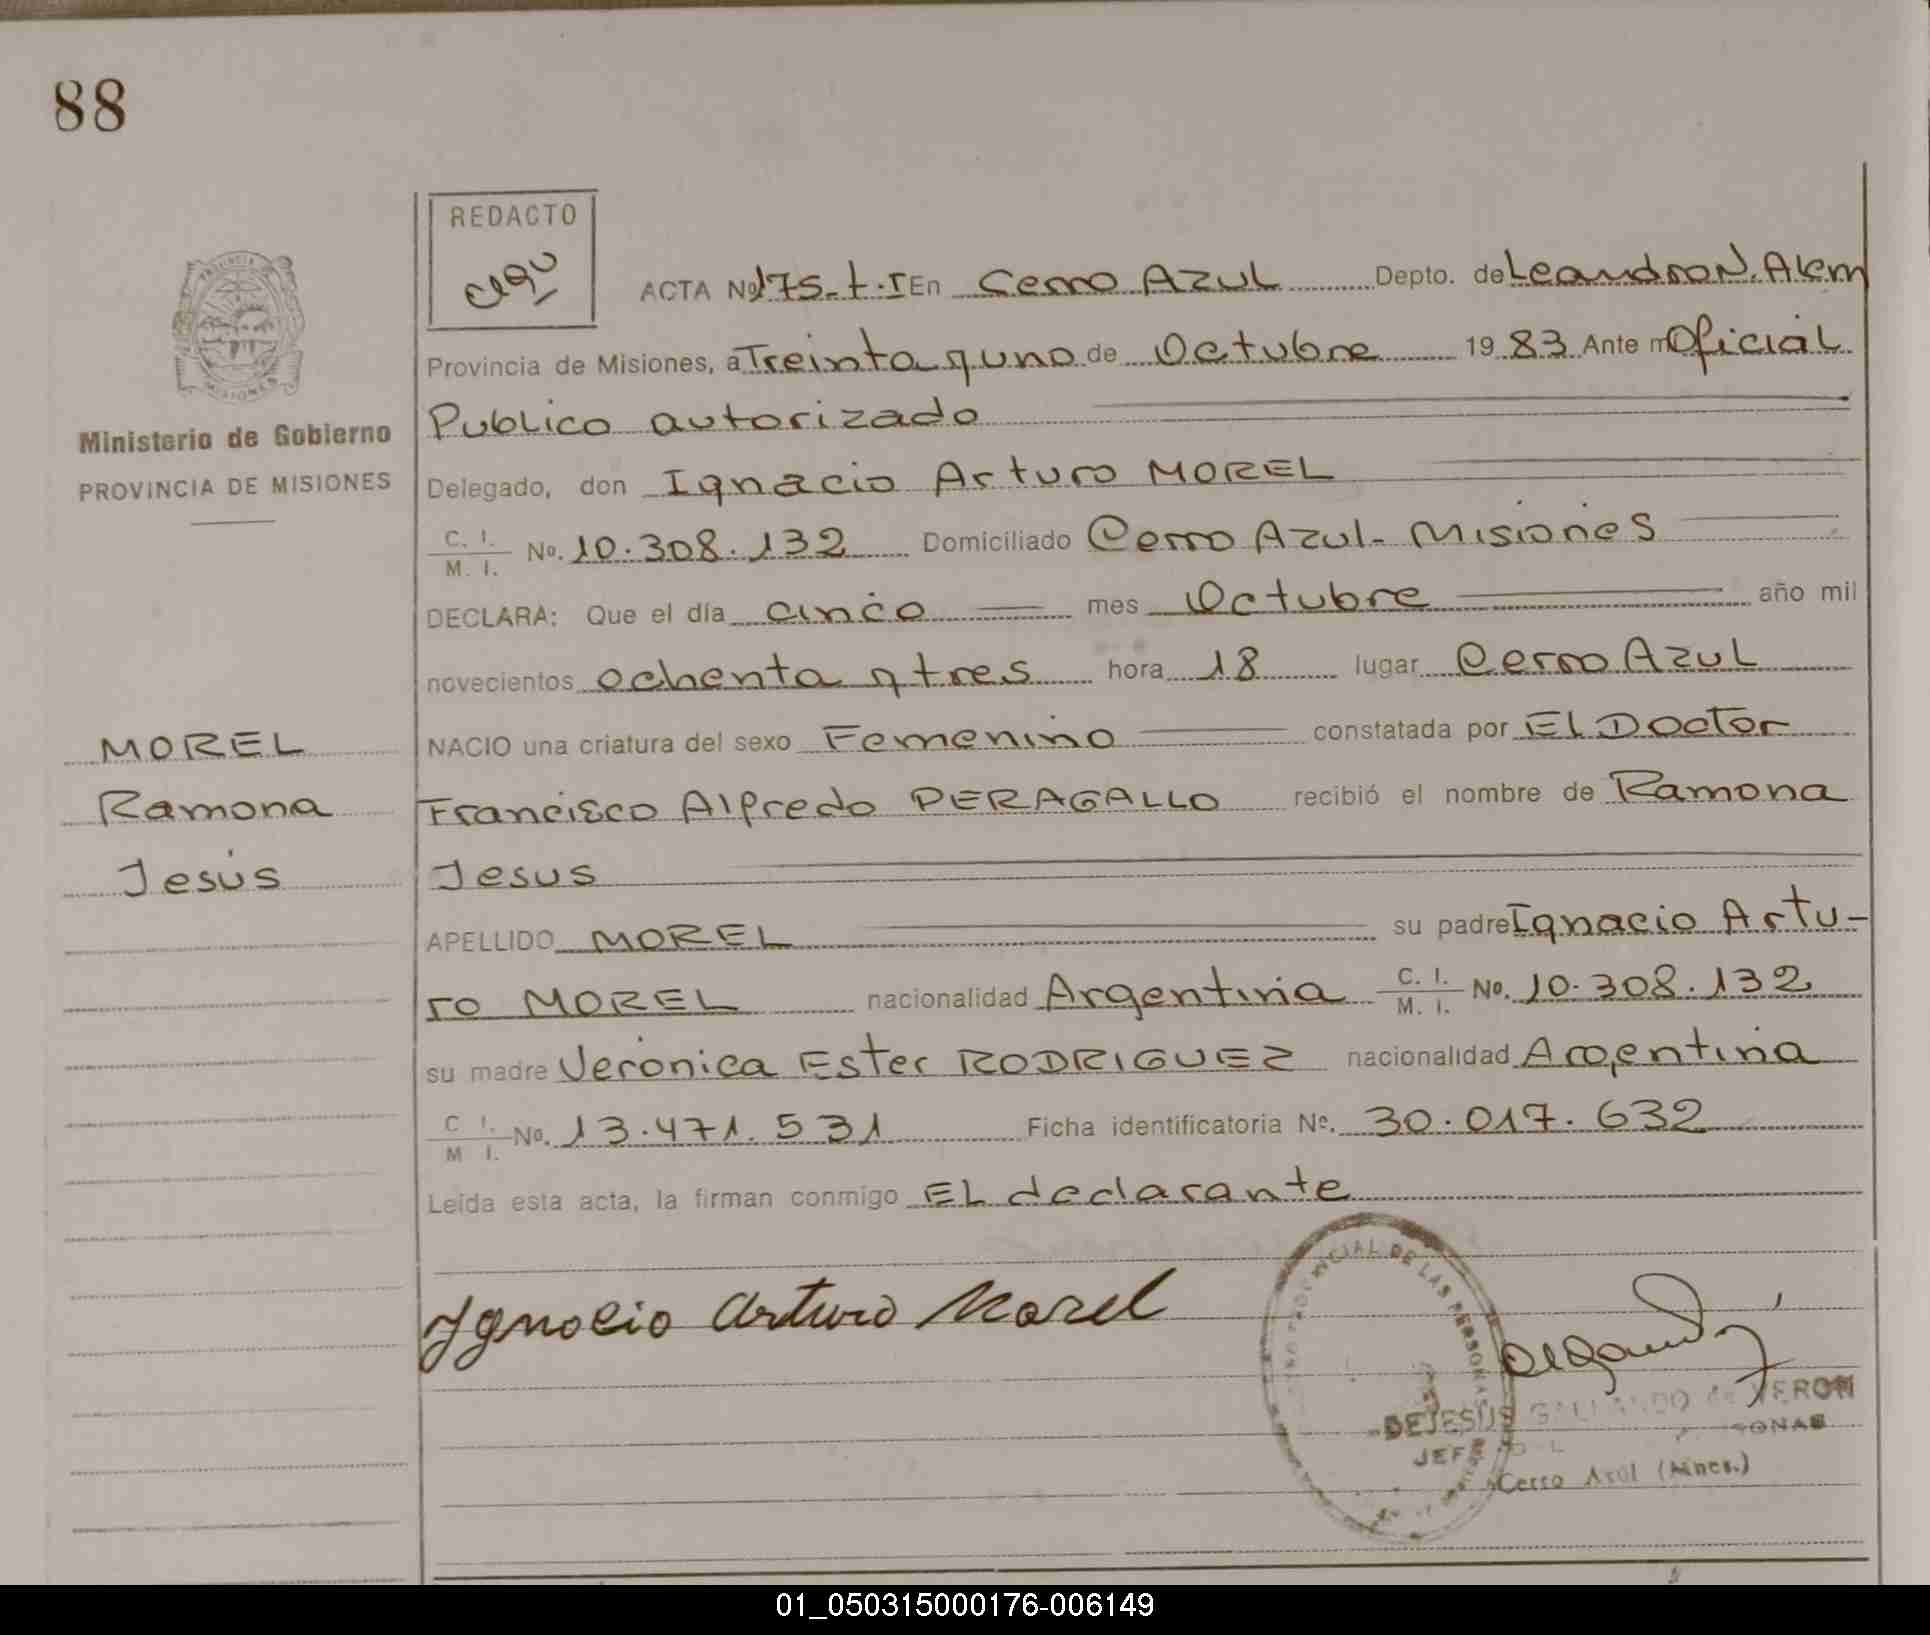 88
REDACTO
PROVINCIA
MISIONES
Ministerio de Gobierno
PROVINCIA DE MISIONES
ACTA No 175-t-I En Cerro AZUL Depto. de Leandro N. Alem
Provincia de Misiones, a Treinta y uno de Octubre 19 83 Ante m Oficial
Publico autorizado
Delegado, don Ignacio Arturo MOREL
C. I. / M. I. No. 10.308.132 Domiciliado Cerro Azul - Misiones
DECLARA: Que el día cinco mes Octubre año mil
novecientos ochenta y tres hora 18 lugar Cerro Azul
MOREL
Ramona
Jesús
NACIO una criatura del sexo Femenino constatada por El Doctor
Francisco Alfredo PERAGALLO recibió el nombre de Ramona
Jesus
APELLIDO MOREL su padre Ignacio Artu-
ro MOREL nacionalidad Argentina C. I. / M. I. No. 10.308.132
su madre Verónica Ester RODRIGUEZ nacionalidad Argentina
C I. / M I. No. 13.471.531 Ficha identificatoria No. 30.017.632
Leída esta acta, la firman conmigo El declarante
Ignacio Arturo Morel
CIAL DE LAS PERSONAS
DEJESUS GALLARDO de VERON
JEF SONAS
Cerro Azul (Mnes.)
01_050315000176-006149